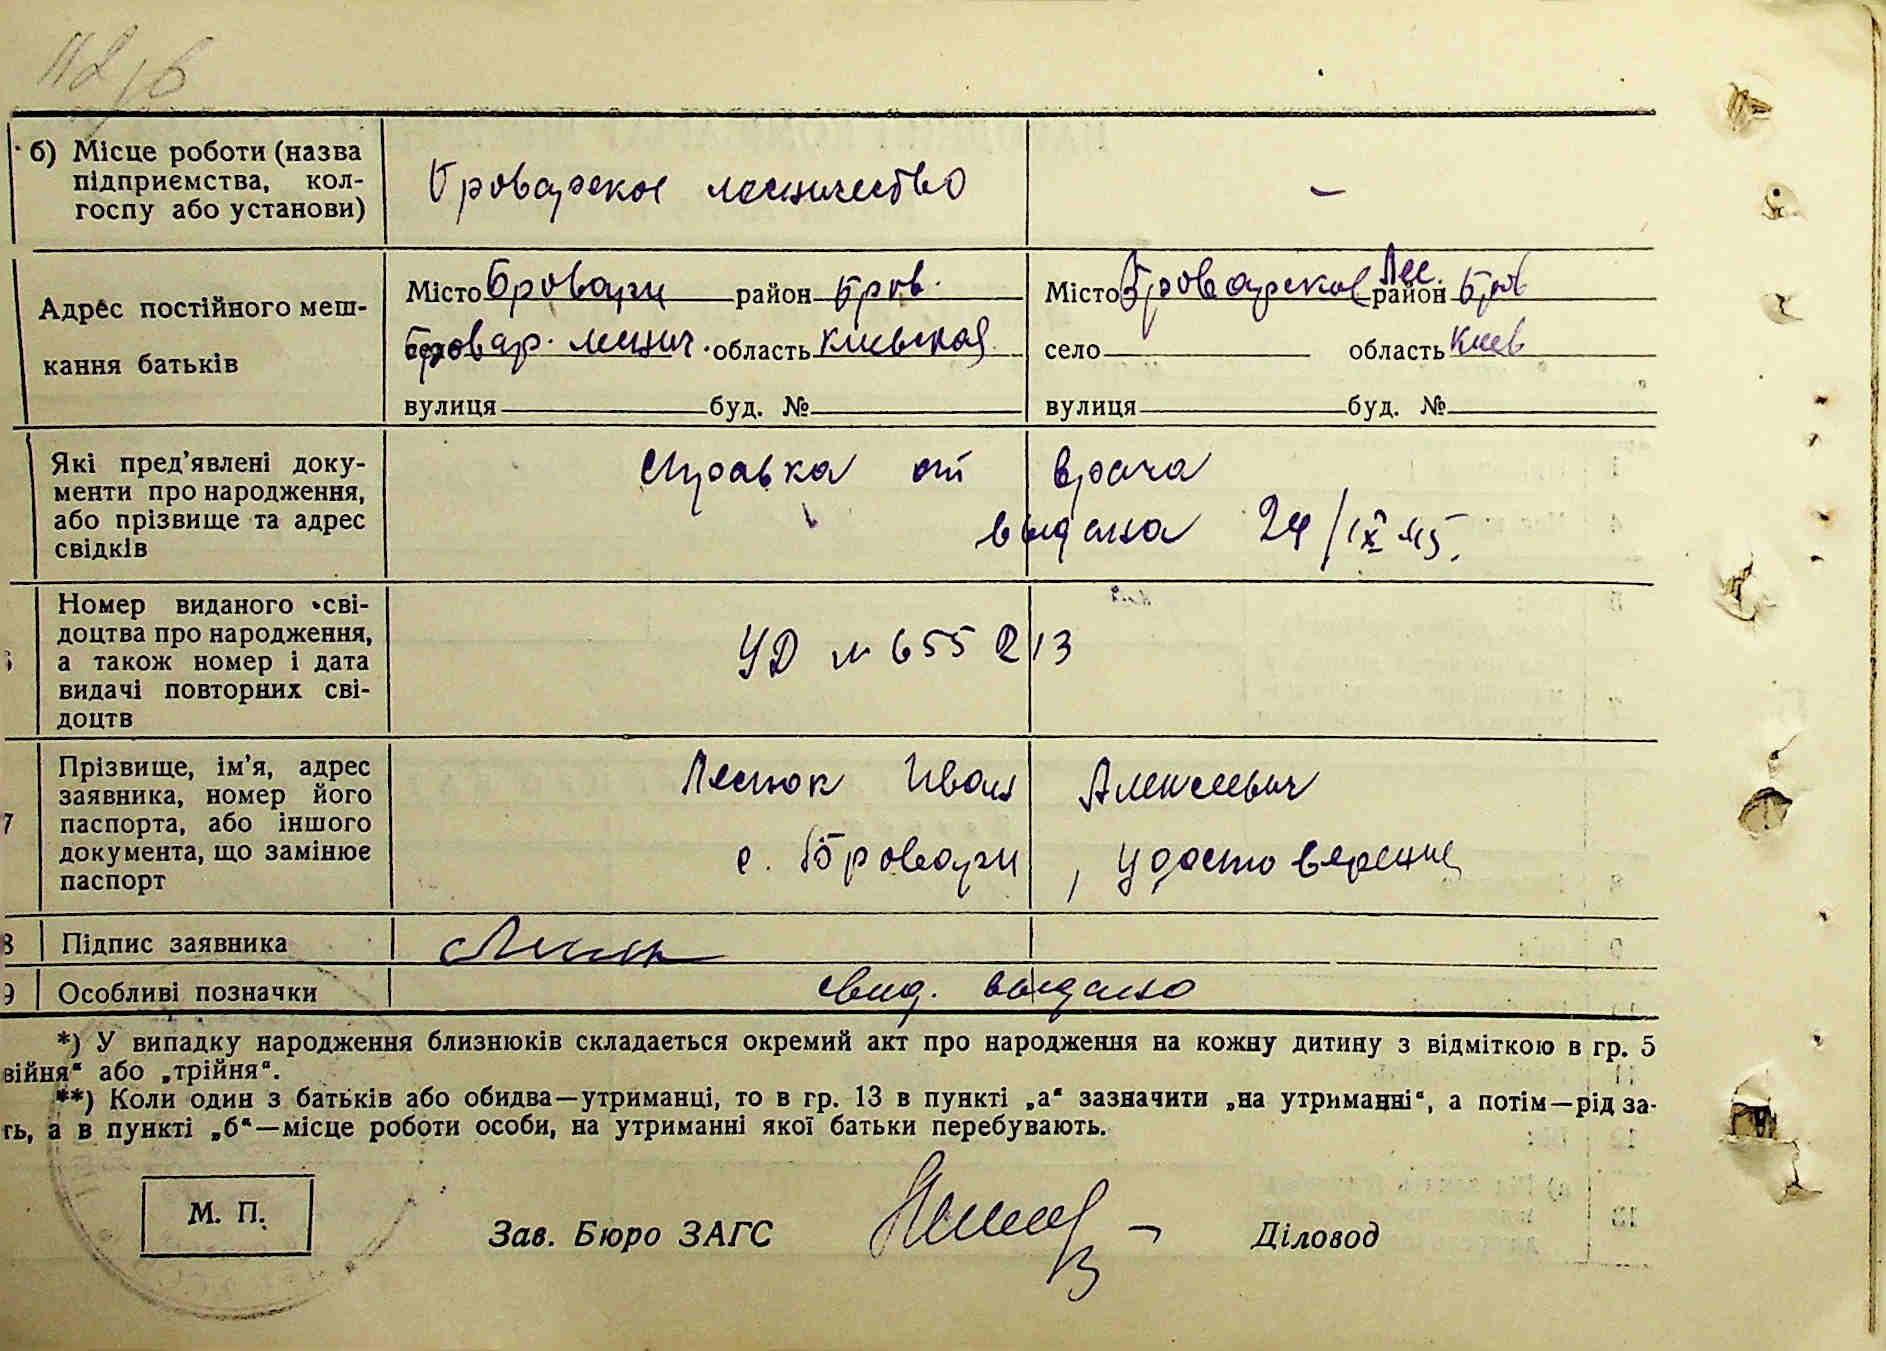 б) Місце роботи (назва
підприємства, кол-
госпу або установи)
Броварское лесничество
–
Адрес постійного меш-
кання батьків
Місто Бровари район Бров.
Бровар. леснич. область Киевская
вулиця буд. №
Місто Броварское Лес. район Бров
село область Киев
вулиця буд. №
Які пред'явлені доку-
менти про народження,
або прізвище та адрес
свідків
справка от врача
выдана 24/IX 45.
Номер виданого сві-
доцтва про народження,
а також номер і дата
видачі повторних сві-
доцтв
УД № 655213
7
Прізвище, ім'я, адрес
заявника, номер його
паспорта, або іншого
документа, що замінює
паспорт
Иван Алексеевич
с. Бровари, удостоверение
8 Підпис заявника
9 Особливі позначки
свид. выдано
*) У випадку народження близнюків складається окремий акт про народження на кожну дитину з відміткою в гр. 5
війня" або „трійня".
**) Коли один з батьків або обидва—утриманці, то в гр. 13 в пункті „а" зазначити „на утриманні", а потім—рід за-
ть, а в пункті „б"—місце роботи особи, на утриманні якої батьки перебувають.
М. П.
Зав. Бюро ЗАГС
Діловод